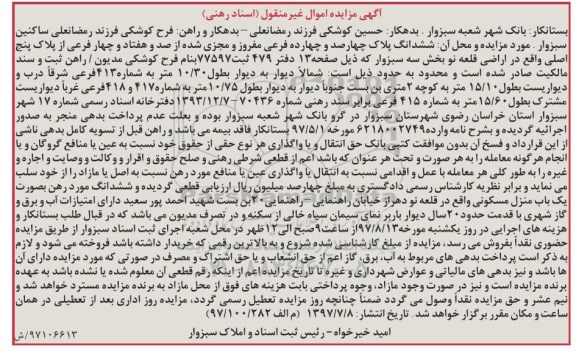 آگهی مزایده اموال غیرمنقول (اسناد رهنی)
بستانکار: بانک شهر شعبه سبزوار . بدهکار: حسین کوشکی فرزند رمضانعلی – بدهکار و راهن: فرح کوشکی فرزند رمضانعلی ساکنین
سبزوار . مورد مزایده و محل آن: ششدانگ پلاک چهارصد و چهارده فرعی مفروز و مجزی شده از صد و هفتاد و چهار فرعی از پلاک پنج
اصلی واقع در اراضی قلعه نو بخش سه سبزوار که ذیل صفحه۱۳ دفتر ۴۷۹ ثبت۷۷۵۹۷بنام فرح کوشکی مدیون / راهن ثبت و سند
مالکیت صادر شده است و محدود به حدود ذیل است: شمالاً دیوار به دیوار بطول۱۰/۳۰ متر به شماره۴۱۳فرعی شرقاً درب و
دیواریست بطول۱۵/۱۰ متر به کوچه ۲متری بن بست جنوباً دیوار به دیوار بطول۱۰/۷۵متر به شماره۴۱۷ و ۴۱۸ فرعی غرباً دیواریست
مشترک بطول۱۵/۶۰متر به شماره ۴۱۵ فرعی برابر سند رهنی شماره ۷۰۴۳۶-۱۳۹۳/۱۲/۷ دفترخانه اسناد رسمی شماره ۱۷ شهر
سبزوار استان خراسان رضوی شهرستان سبزوار در گرو بانک شهر شعبه سبزوار بوده و بعلت عدم پرداخت بدهی منجر به صدور
اجرائیه گردیده و بشرح نامه وارده ۶۲۱۸۰۰۲۷۴۹ مورخه ۹۷/۵/۱ بستانکار فاقد بیمه می باشد و راهن قبل از تسویه کامل بدهی ناشی
از این قرارداد و فسخ آن بدون موافقت کتبی بانک حق انتقال و یا واگذاری هر نوع حقی از حقوق خود نسبت به عین یا منافع گروگان و یا
انجام هرگونه معامله را به هر صورت و تحت هر عنوان که باشد اعم از قطعی شرطی رهنی و صلح حقوق و اقرار و وکالت و وصایت و اجاره و
غیره را به طور کلی هر معامله یا عمل و اقدامی نسبت به انتقال یا واگذاری عین یا منافع مورد رهن نسبت به اصل یا مازاد را از خود سلب
می نماید و برابر نظریه کارشناس رسمی دادگستری به مبلغ چهارصد میلیون ریال ارزیابی قطعی گردیده و ششدانگ مورد رهن بصورت
یک باب منزل مسکونی واقع در قلعه نو دهراز خیابان راهنمایی - راهنمایی ۲۰بن بست شهید احمد پور سعید دارای امتیازات آب و برق و
گاز شهری با قدمت حدود۲۰سال دیوار باربر نمای سیمان سیاه خالی از سکنه و در تصرف مدیون می باشد که در قبال طلب بستانکار و
هزینه های اجرایی در روز یکشنبه مورخه۹۷/۸/۱۳از ساعت۹صبح الی۱۲ظهر در محل شعبه اجرای ثبت اسناد سبزوار از طریق مزایده
حضوری نقداً بفروش می رسد، مزایده از مبلغ کارشناسی شده شروع و به بالاترین رقمی که خریدار داشته باشد فروخته می شود و لازم
به ذکر است پرداخت بدهی های مربوط به آب، برق، گاز اعم از حق انشعاب و یا حق اشتراک و مصرف در صورتی که مورد مزایده دارای آن
ها باشد و نیز بدهی های مالیاتی و عوارض شهرداری و غیره تا تاریخ مزایده اعم از اینکه رقم قطعی آن معلوم شده یا نشده باشد به عهده
برنده مزایده است و نیز در صورت وجود مازاد، وجوه پرداختی بابت هزینه های فوق از محل مازاد به برنده مزایده مسترد خواهد شد و
نیم عشر و حق مزایده نقداً وصول می گردد ضمناً چنانچه روز مزایده تعطیل رسمی گردد، مزایده روز اداری بعد از تعطیلی در همان
ساعت و مکان مقرر برگزار خواهد شد. تاریخ انتشار: ۱۳۹۷/۷/۸ (م الف ۹۷/۱۰۰/۲۸۲)
امید خیرخواه - رئیس ثبت اسناد و املاک سبزوار
۹۷۱۰۶۶۱۳/ش